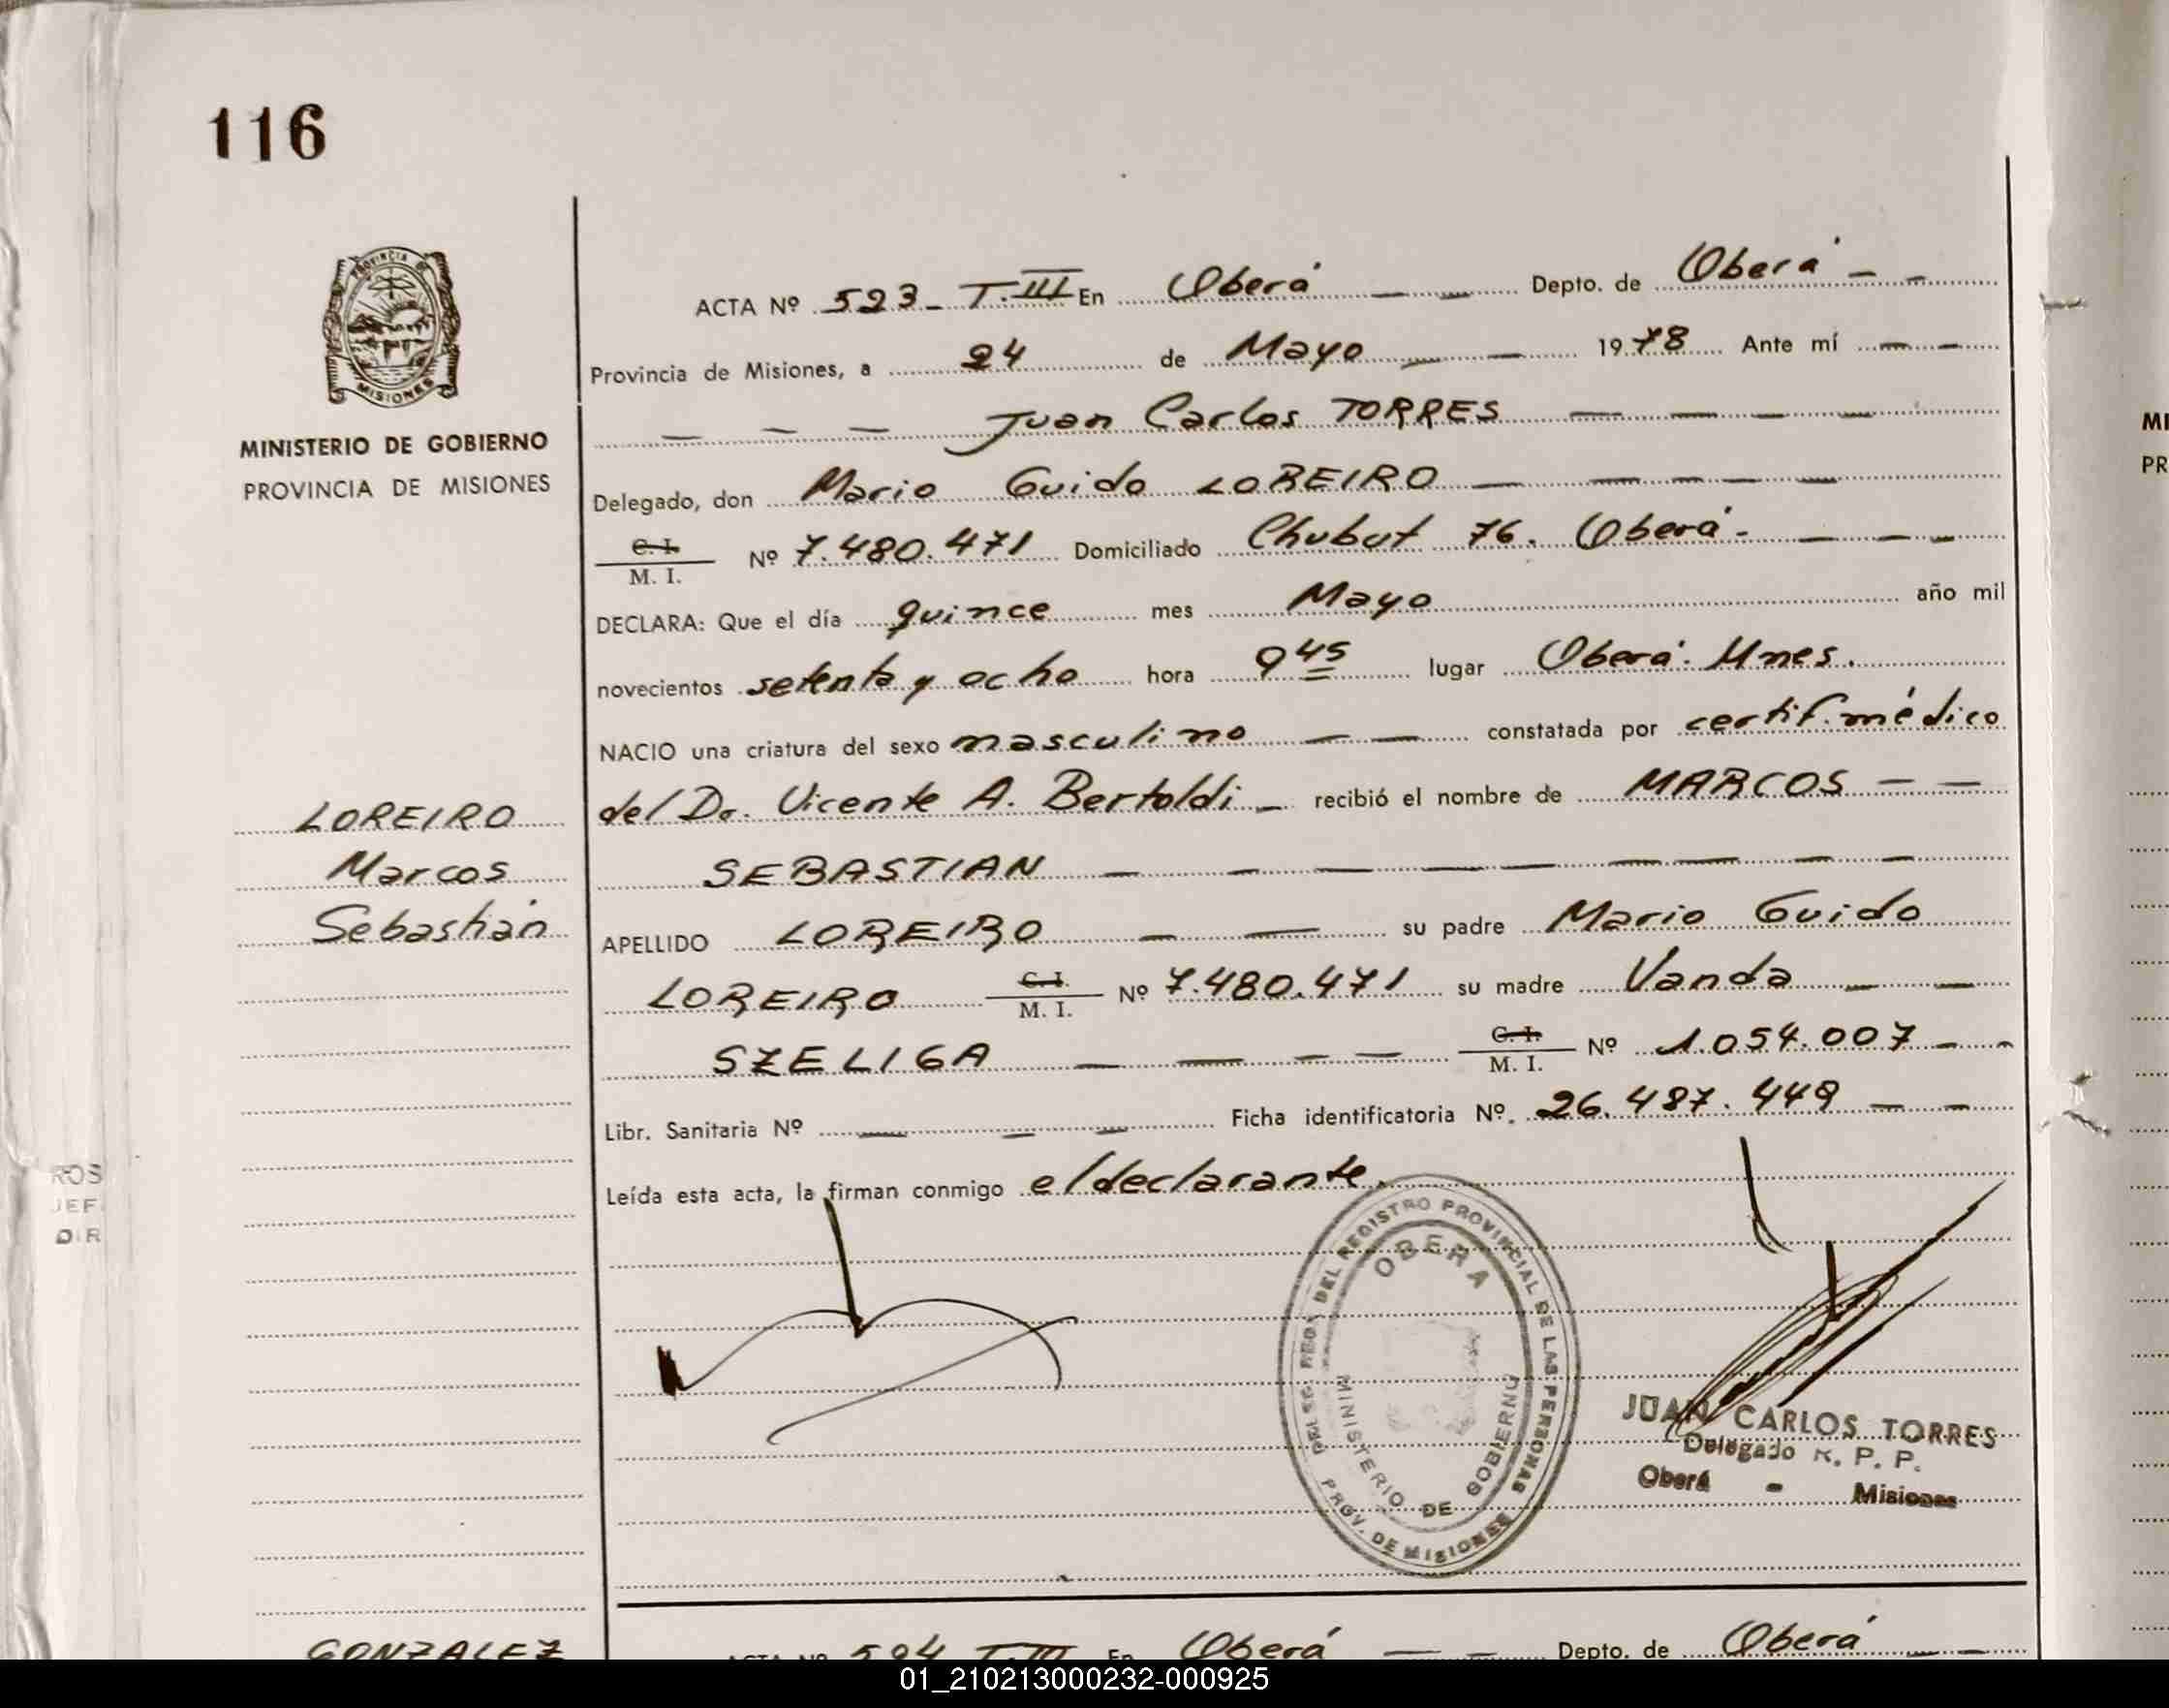 116
PROVINCIA DE
MISIONES
MINISTERIO DE GOBIERNO
PROVINCIA DE MISIONES
ACTA Nº 523- T.III En Oberá Depto. de Oberá
Provincia de Misiones, a 24 de Mayo 1978 Ante mí
Juan Carlos TORRES
Delegado, don Mario Guido LOREIRO
C. I. / M. I. Nº 7.480.471 Domiciliado Chubut 76. Oberá.
DECLARA: Que el día quince mes Mayo año mil
novecientos setenta y ocho hora 9 45 lugar Oberá. Mnes.
NACIO una criatura del sexo masculino constatada por certif. médico
del Dr. Vicente A. Bertoldi recibió el nombre de MARCOS
SEBASTIAN
APELLIDO LOREIRO su padre Mario Guido
LOREIRO C. I. / M. I. Nº 7.480.471 su madre Vanda
SZELIGA C. I. / M. I. Nº 1.054.007
Libr. Sanitaria Nº Ficha identificatoria Nº. 26.487.449
Leída esta acta, la firman conmigo el declarante.
LOREIRO
Marcos
Sebastián
DEL REGISTRO PROVINCIAL DE LAS PERSONAS
OBERA
MINISTERIO DE GOBIERNO
PROV. DE MISIONES
JUAN CARLOS TORRES
Delegado R. P. P.
Oberá - Misiones
ROS
JEF
DIR
MI
PR
GONZALEZ
ACTA Nº 524 T.III En Oberá Depto. de Oberá
01_210213000232-000925